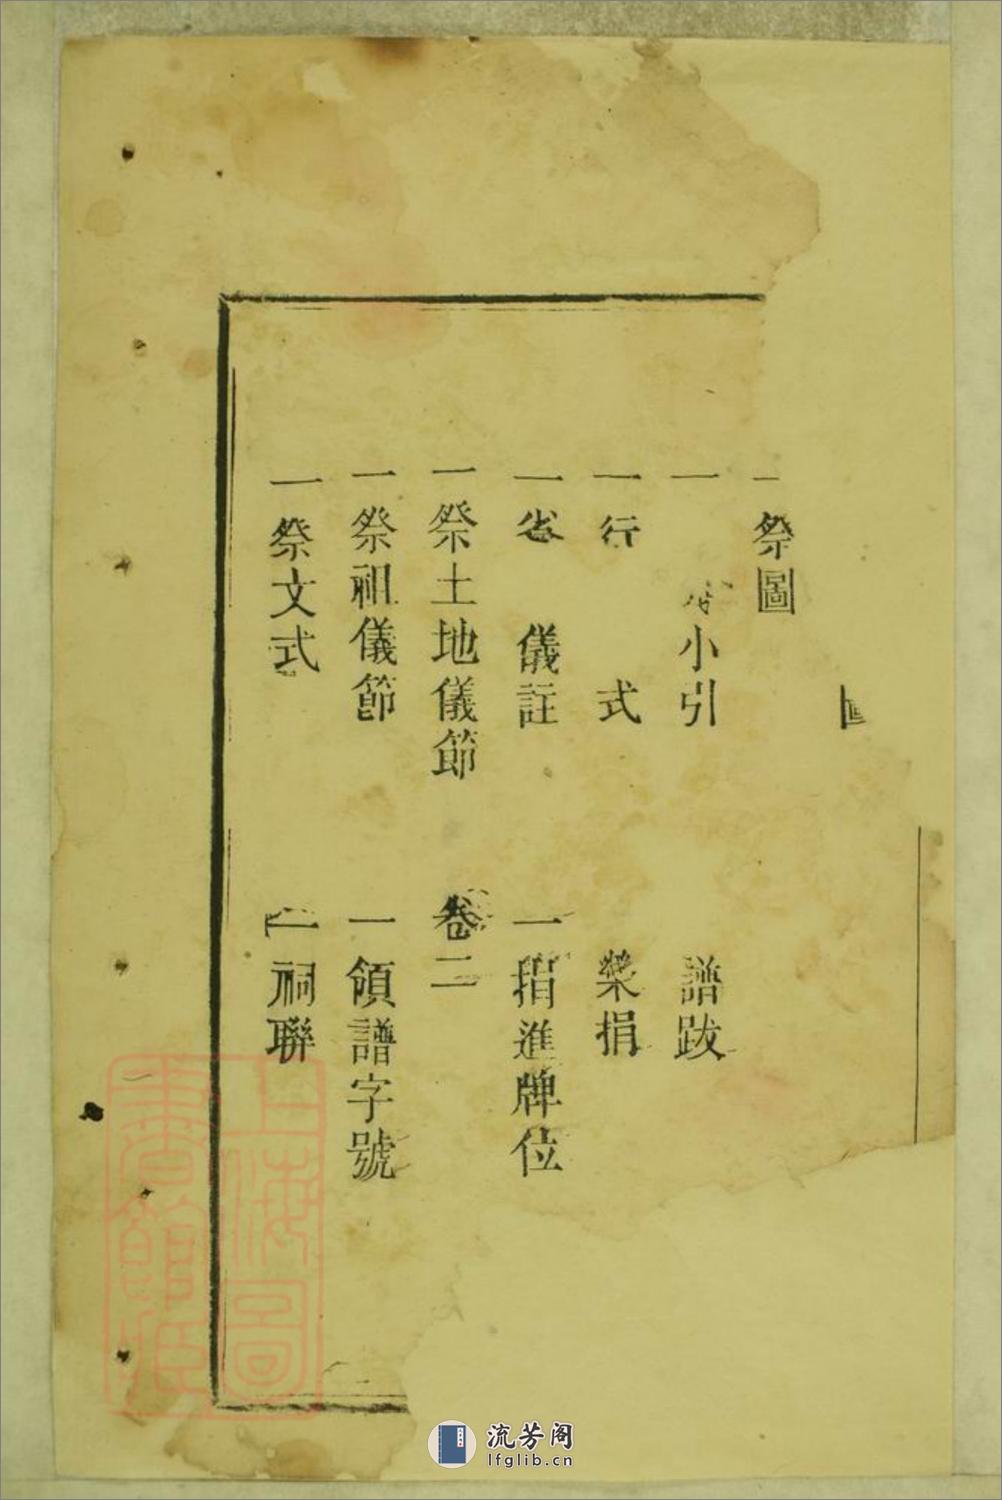 一祭圖
一 小引 譜跋
一行 式 榮捐
一省 儀註 一捐進牌位
一祭土地儀節 卷二
一祭祖儀節 一領譜字號
一祭文式 一祠聯
上海圖書館藏
流芳阁
lfglib.cn